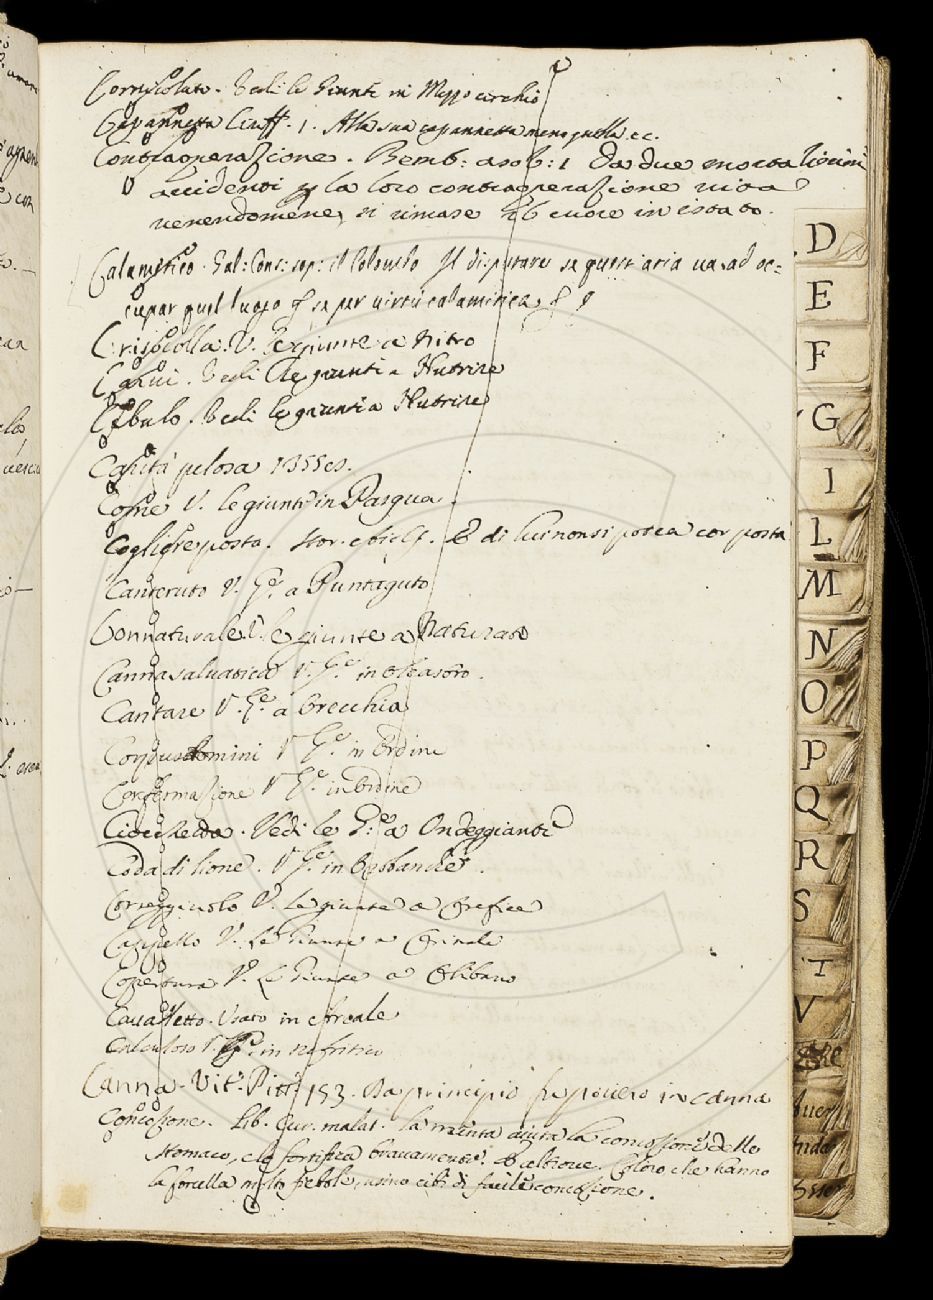 Vedi le Giunte in Mezzo cerchio
Capannetta Ciriff. 1. Alla sua capannetta mena quella ec.
Contraoperazione. Bemb: asol: 1 Da due mortalissimi
accidenti la loro contraoperazione vita
venendomene, si rimase il cuore in istato.
Calamitico. Gal: Cons: sop: il Colombo Il disputare se quest'aria vada ad oc=
cupar quel luogo se per virtù calamitica
Crisocolla. V. le giunte a Nitro
Carui. Vedi le giunti a Nutrire
Vedi le giunti a Nutrire
Carità pelosa
V. le giunti in Pasqua
Coglier posta. Stor. E di lui non si potea cor posta
Canteruto V. Ge. a Puntaguto
Connaturale V. le giunte a Naturato
Canna salvatica V. Ge. in Oleastro.
Cantare V. Ge. a Orecchia
Corpusdomini V. Ge. in Ordine
Confermazione V. Ge. in Ordine
Vedi le Ge. a Ondeggiante
Coda di lione. V. Ge. in Orobanche.
Correggiuolo V. Le giunte a Orefice
Cappello V. Le Giunte a Orinale
Copertura V. Le Giunte a Olibano
Cavalletto. Usato in
Calculoso V. Ge. in Nefritico
Canna. Vit. Pitt. 153. Da principio fu povero in canna
Concozione. Lib. cur. malat. la menta aiuta la concozione dello
stomaco, e lo fortifica bravamente. E altrove. Coloro che hanno
la forcella molto fiebole, usino cibi di facile concozione.
D
E
F
G
I
L
M
N
O
P
Q
R
S
T
V